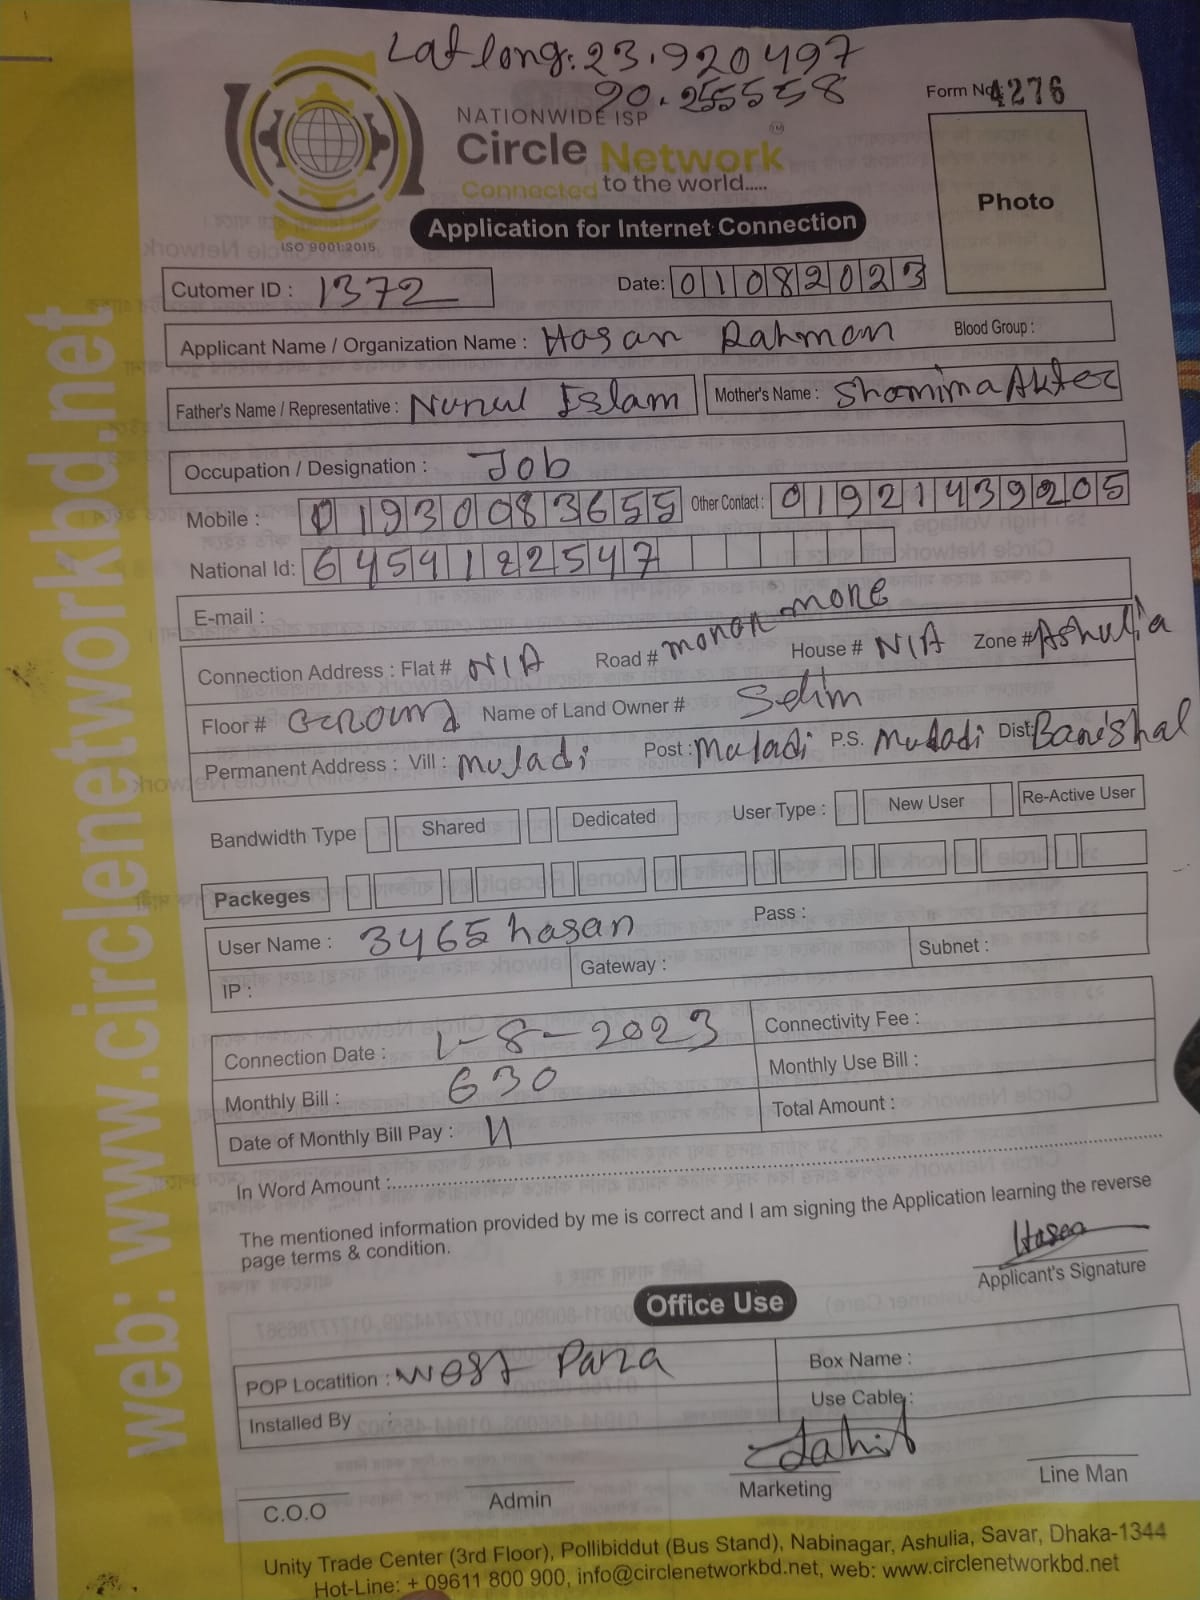 Lat long: 23.920497
90.255558
Form No: 4276
NATIONWIDE ISP
Circle Network
TM
Connected to the world.....
Photo
ISO 9001:2015
Application for Internet Connection
Cutomer ID : 1372
Date: 01082023
Applicant Name / Organization Name : Hasan Rahman Blood Group :
Father's Name / Representative : Nurul Islam Mother's Name : Shamima Akter
Occupation / Designation : Job
Mobile : 01930083655 Other Contact : 01921439205
National Id: 6459122547
E-mail :
Connection Address : Flat # N/A Road # monon more House # N/A Zone # Ashulia
Floor # Ground Name of Land Owner # Selim
Permanent Address : Vill : muladi Post : Muladi P.S. Muladi Dist: Barishal
Bandwidth Type Shared Dedicated User Type : New User Re-Active User
Packeges
User Name : 3465hasan Pass :
IP : Gateway : Subnet :
Connection Date : 1-8-2023 Connectivity Fee :
Monthly Bill : 630 Monthly Use Bill :
Date of Monthly Bill Pay : Total Amount :
In Word Amount :
The mentioned information provided by me is correct and I am signing the Application learning the reverse
page terms & condition.
Hasan
Applicant's Signature
Office Use
POP Locatition : West Para Box Name :
Installed By : Use Cable :
C.O.O Admin Marketing Line Man
Unity Trade Center (3rd Floor), Pollibiddut (Bus Stand), Nabinagar, Ashulia, Savar, Dhaka-1344
Hot-Line: + 09611 800 900, info@circlenetworkbd.net, web: www.circlenetworkbd.net
web: www.circlenetworkbd.net